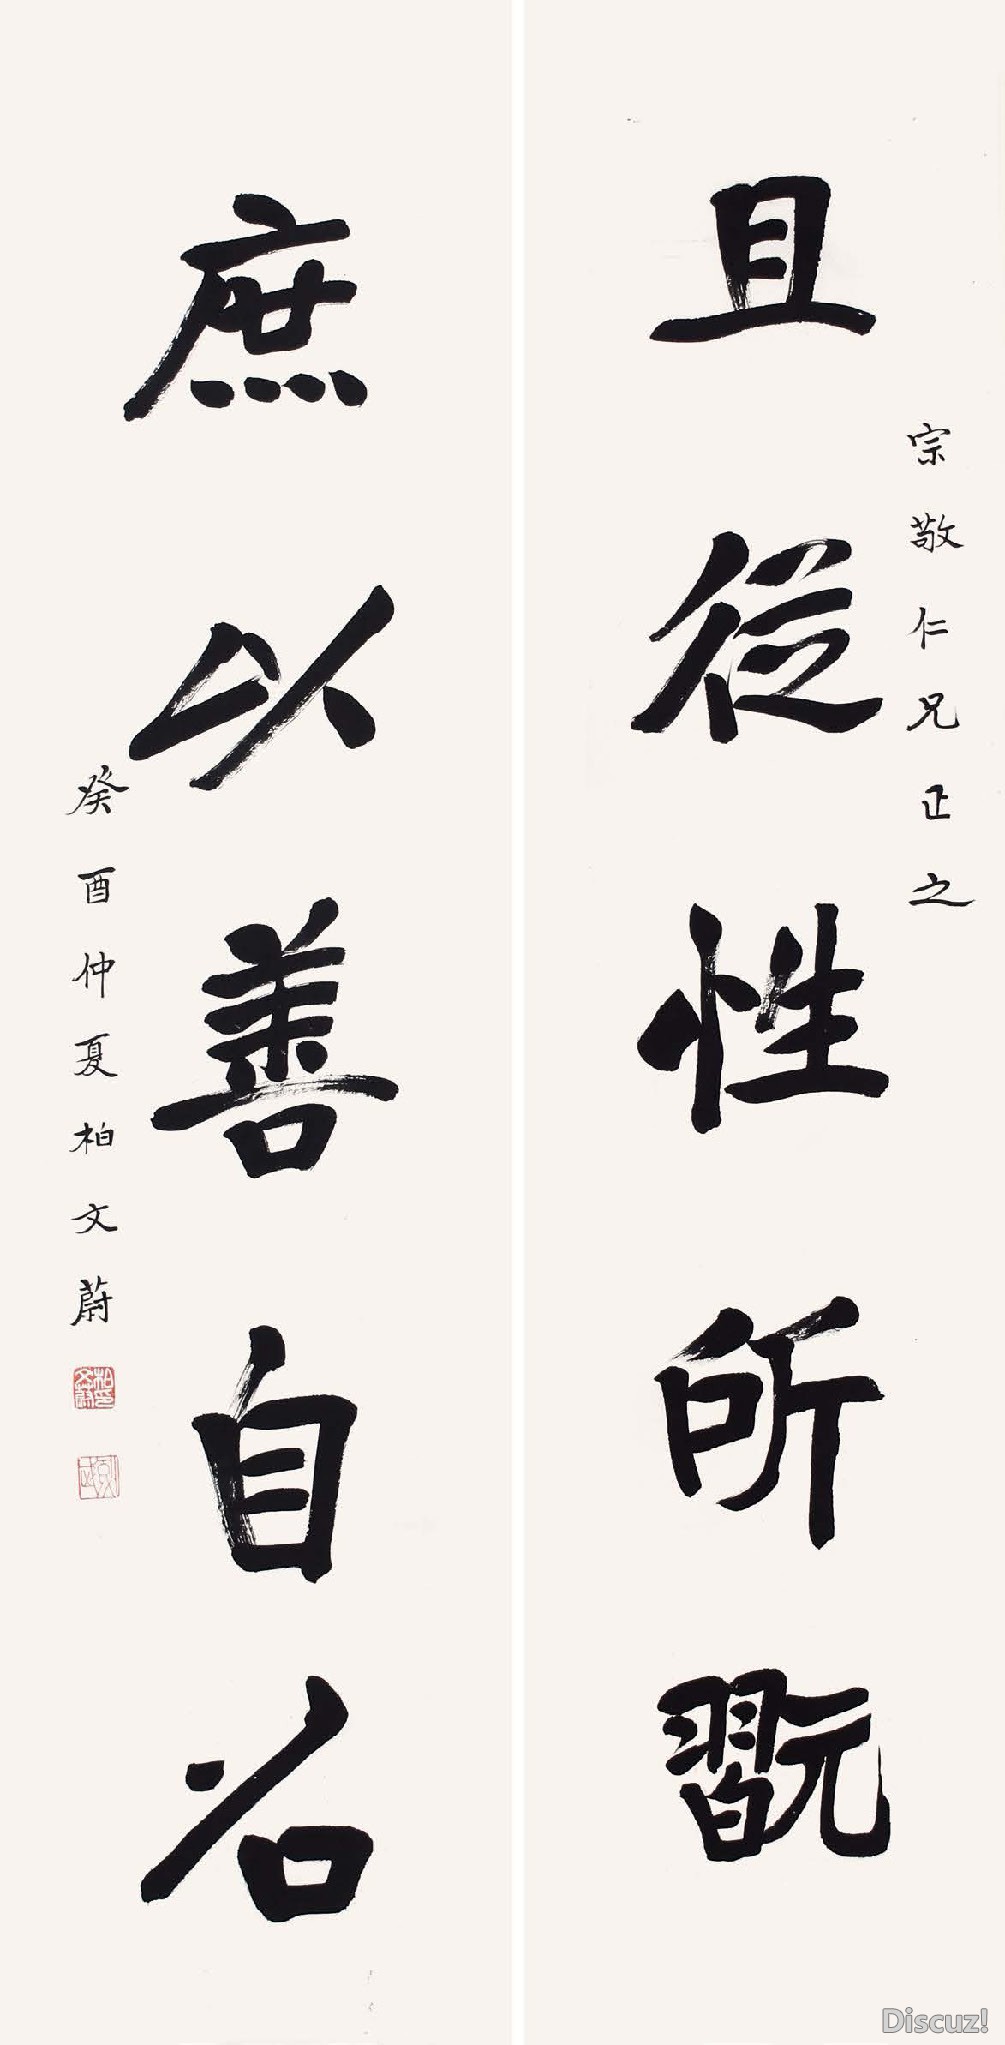 宗敬仁兄正之
且從性所翫
庶以善自名
癸酉仲夏柏文蔚
柏文蔚印
Discuz!